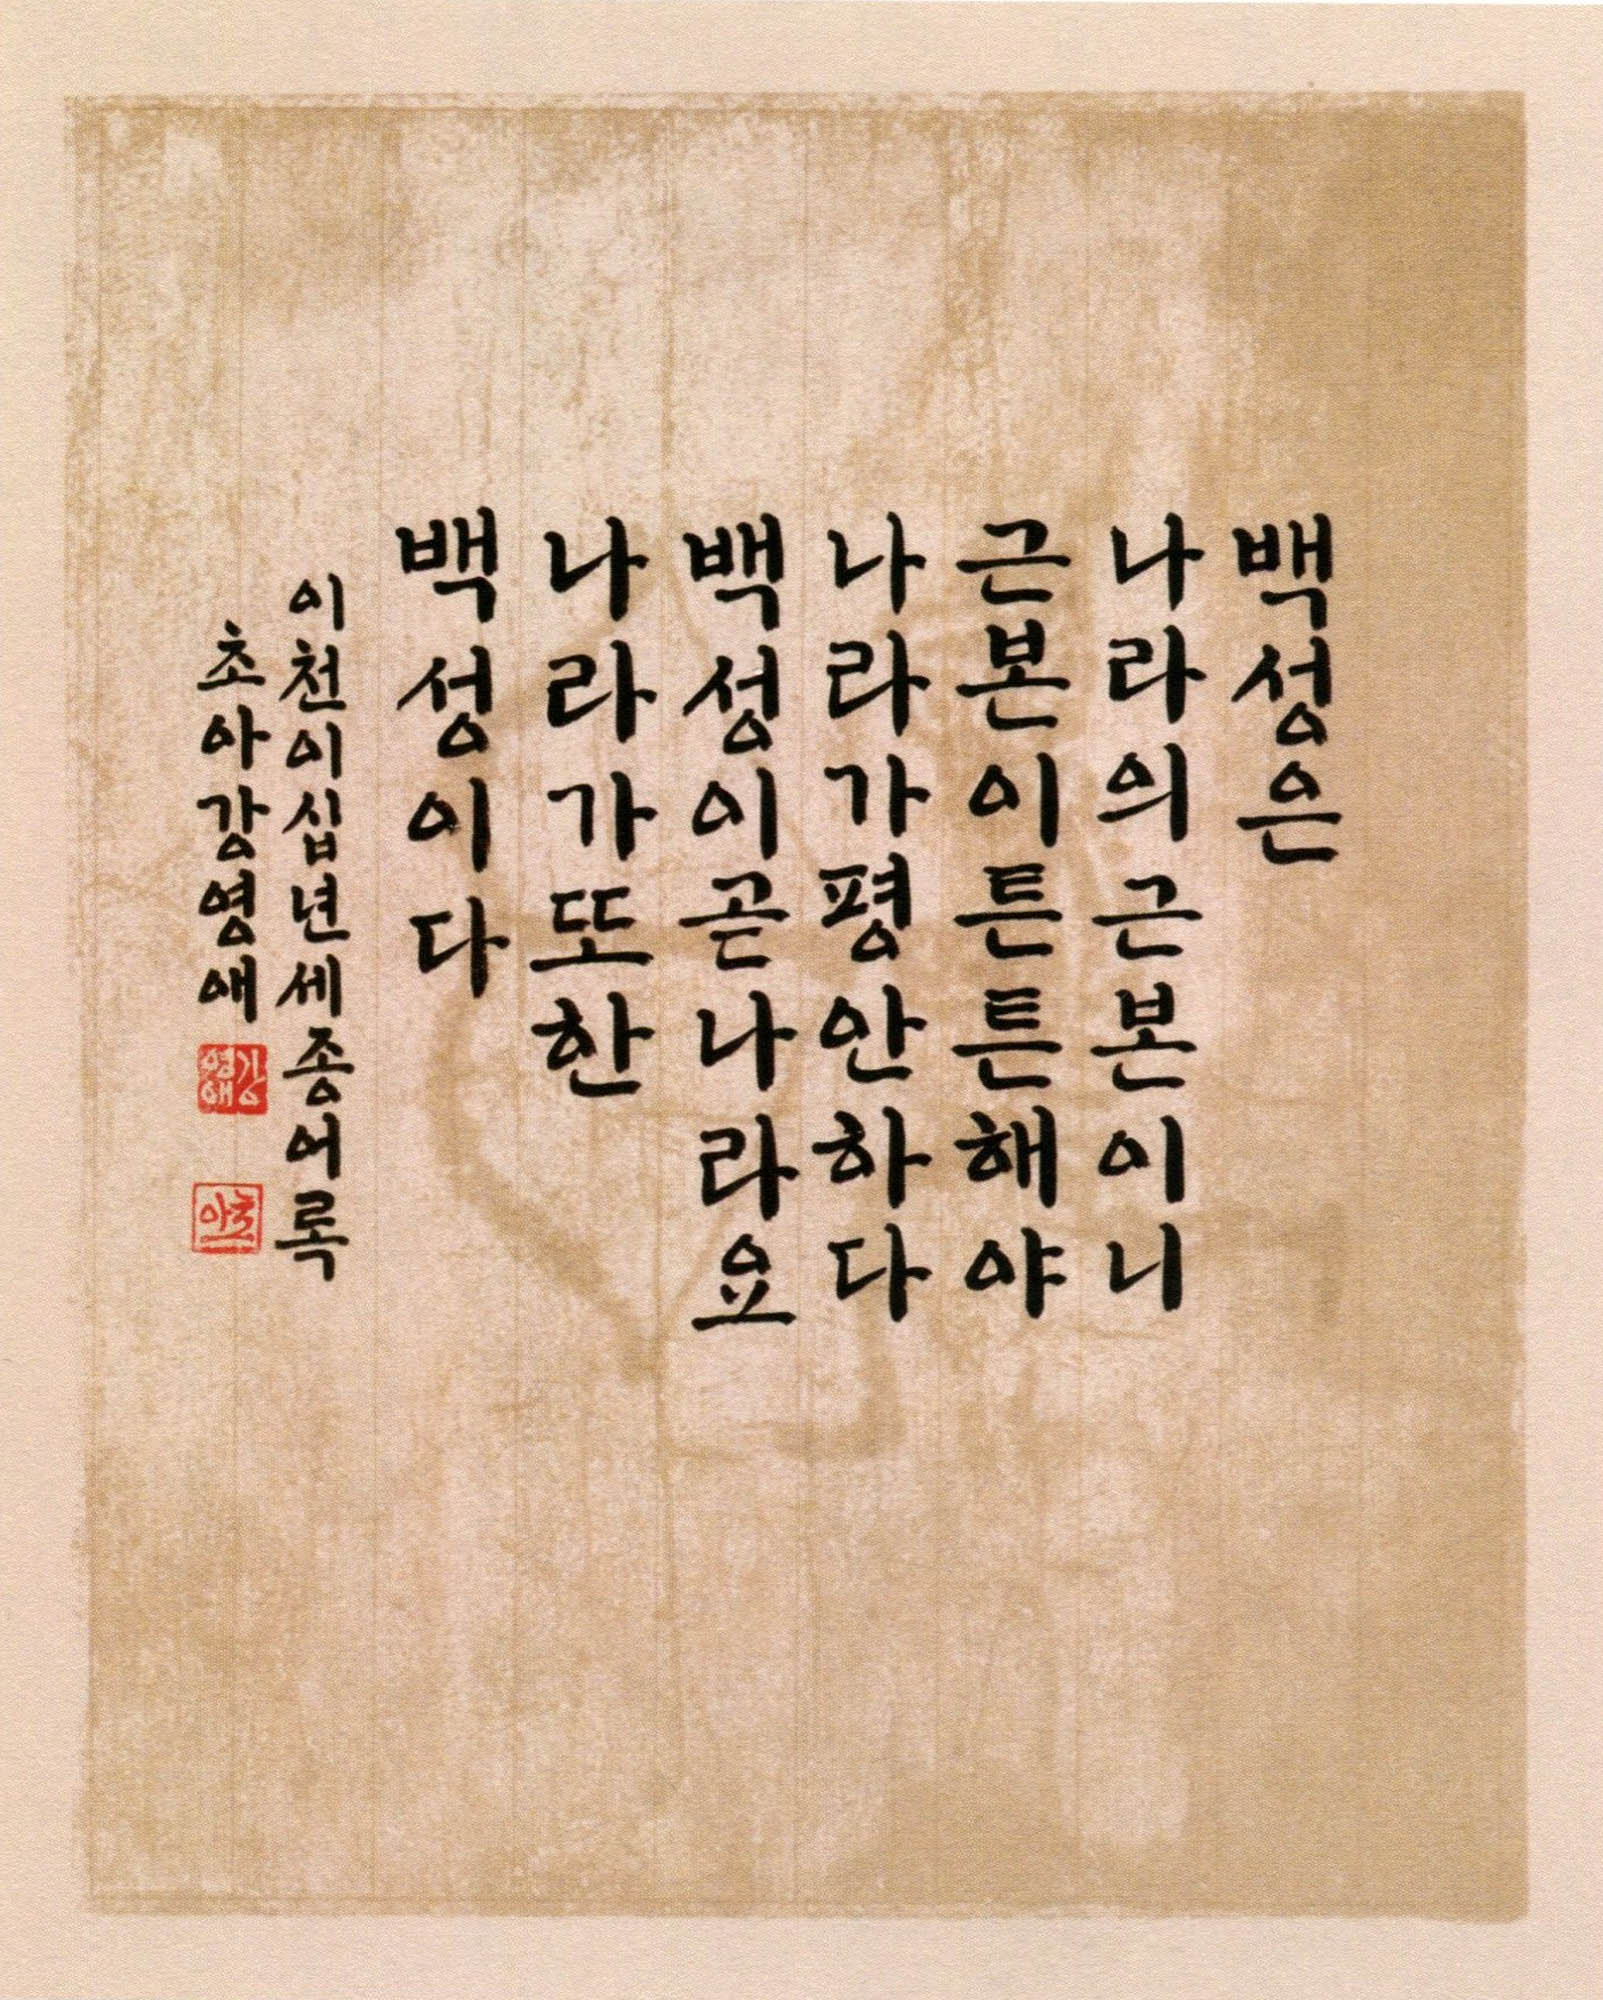 백성은
나라의근본이니
근본이튼튼해야
나라가평안하다
백성이곧나라요
나라가또한
백성이다
이천이십년세종어록
초아강영애
강영애
초아